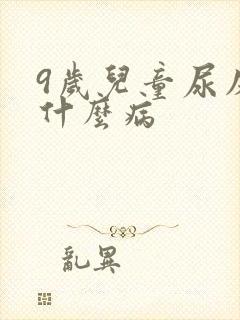 9歲兒童尿
什麼病
亂異